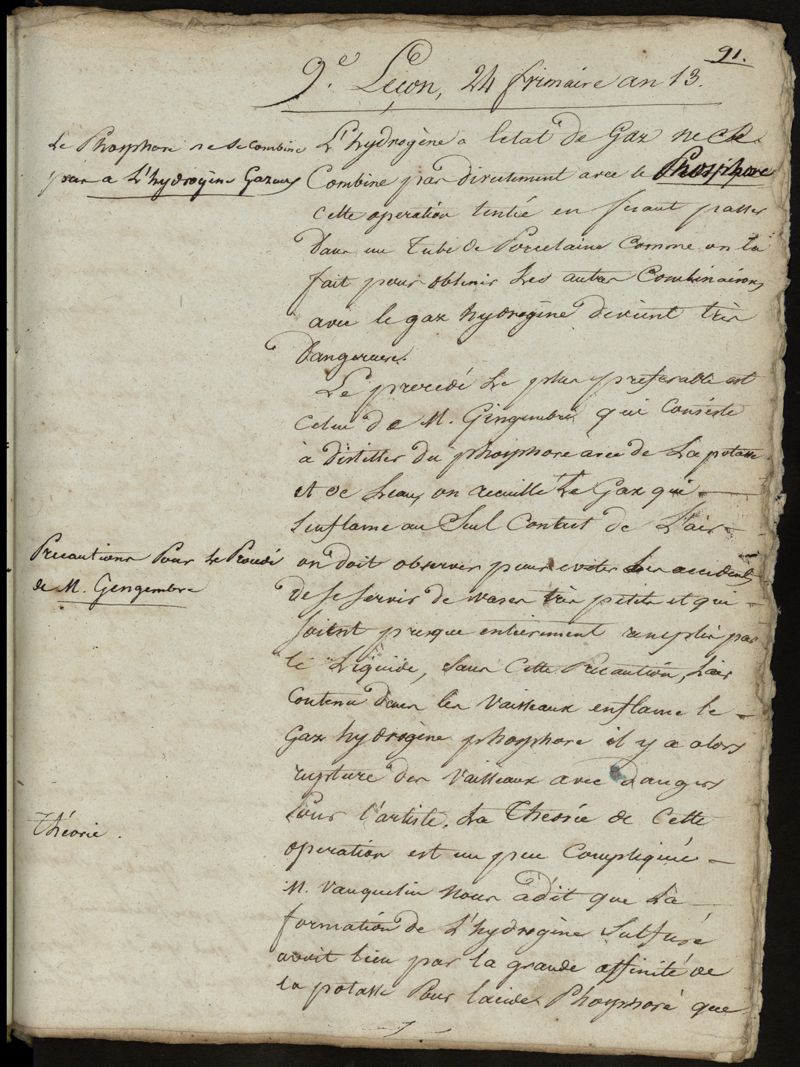 91.
9.e Leçon, 24 frimaire an 13.
Le Phosphore ne se combine
pas a L'hydrogène Gazeux
L'hydrogène a letat de Gaz ne se
Combine pas directement avec le Phosphore
cette operation tentée en fesant passer
Dans un Tube de Porcelaine comme on la
fait pour obtenir les autres Combinaisons
avec le gaz hydrogène devient très
Dangereuse.
Le procedé le plus preferable est
Celui de M. Gingembre qui consiste
à distiller du phosphore avec de La potasse
et de Leau, on recueille Le Gaz qui
Senflame au Seul Contact de L'air
Precautions Pour le Procédé
de M. Gengembre
on doit observer pour eviter les accidents
de se servir de vases très petits et qui
soient presque entierement remplis par
le Liquide, sans Cette Precaution, L'air
Contenu dans les Vaisseaux enflame le
Gaz hydrogène phosphore il y a alors
rupture des vaisseaux avec dangers
Théorie.
Pour l'artiste. La Theorie de Cette
operation est un peu Compliquée
M. Vauquelin nous a dit que La
formation de L'hydrogène Sulfuré
avoit lieu par la grande affinité de
la potasse Pour lacide Phosphore que